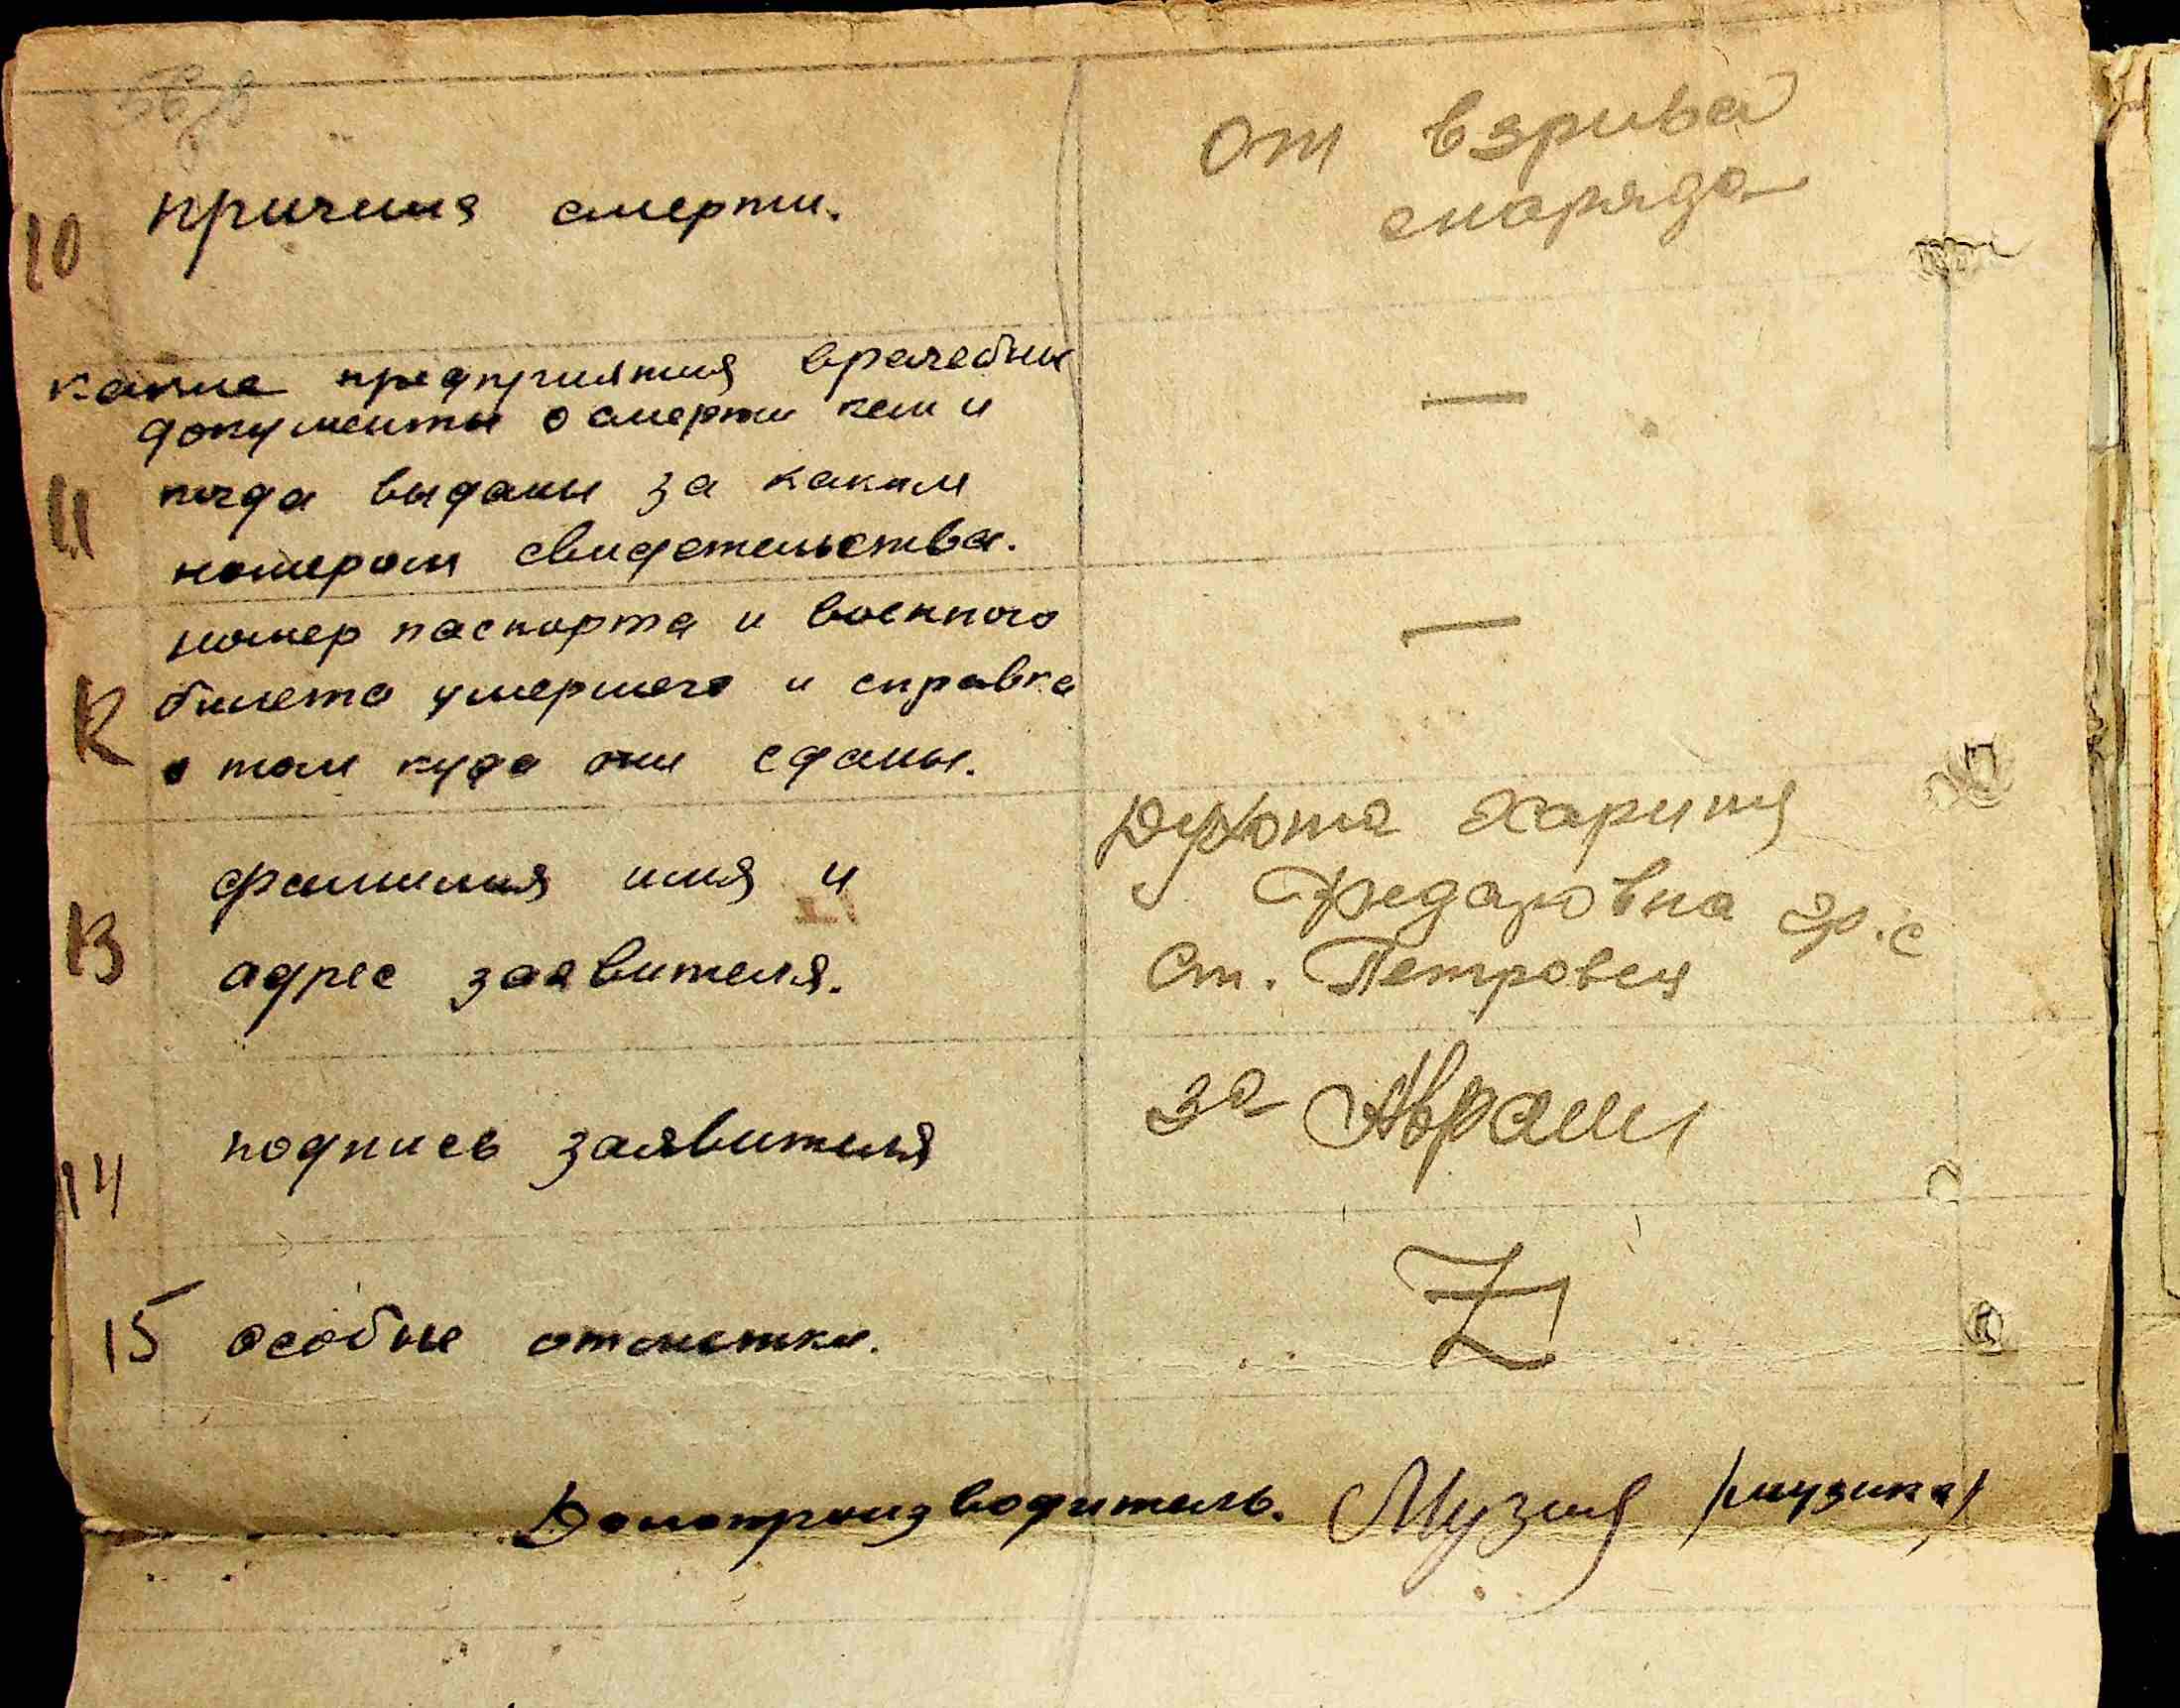 10 причина смерти.
от взрива
снаряда
11 какие предприятия врачебны
документы о смерти кем и
когда выданы за каким
номером свидетельства.
—
12 номер паспорта и военного
билета умершего и справка
о том куда они сданы.
—
13 фамилия имя и
адрес заявителя.
Духота Харитя
Федаровна гр. с
Ст. Петровся
14 подпись заявителя
за Аврами
15 особые отметки.
Z
Делопроизводитель. Музыя /музика/